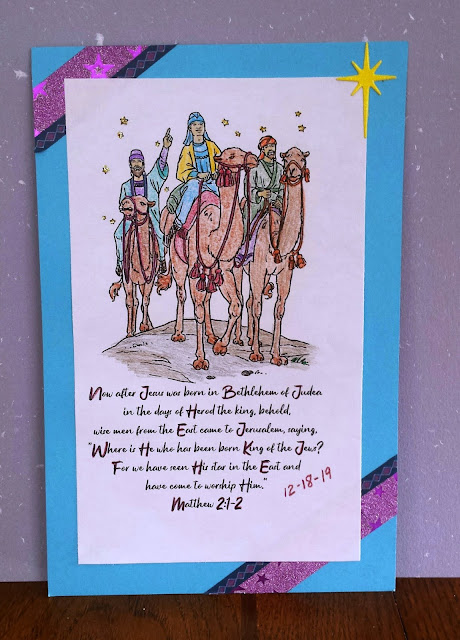 Now after Jesus was born in Bethlehem of Judea
in the days of Herod the king, behold,
wise men from the East came to Jerusalem, saying,
"Where is He who has been born King of the Jews?
For we have seen His star in the East and
have come to worship Him."
12-18-19
Matthew 2:1-2